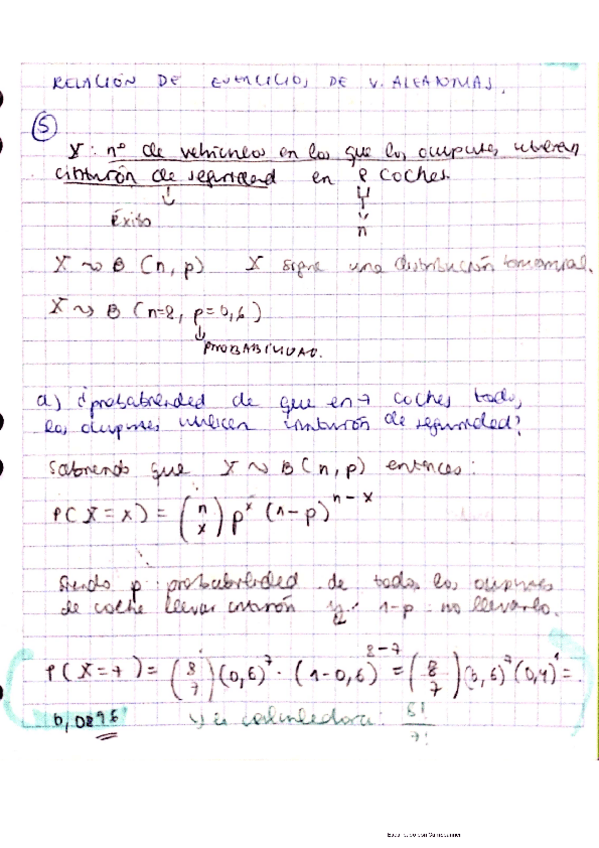 RELACIÓN DE EJERCICIOS DE V. ALEATORIAS.
5
X: nº de vehículos en los que los ocupantes utilizan
cinturón de seguridad en 8 coches.
éxito
n
X ~ B (n, p) X sigue una distribución binomial.
X ~ B (n=8, p=0,6)
PROBABILIDAD.
a) ¿probabilidad de que en 7 coches todos
los ocupantes utilicen cinturón de seguridad?
Sabiendo que X ~ B (n, p) entonces:
P(X = x) = (n x) p^x (1-p)^n-x
Siendo p probabilidad de todos los ocupantes
de coche llevar cinturón y 1-p no llevarlo.
P(X=7) = (8 7) (0,6)^7 · (1-0,6)^8-7 = (8 7) (0,6)^7 (0,4)^1 =
0,0896 calculadora: 8! 7!